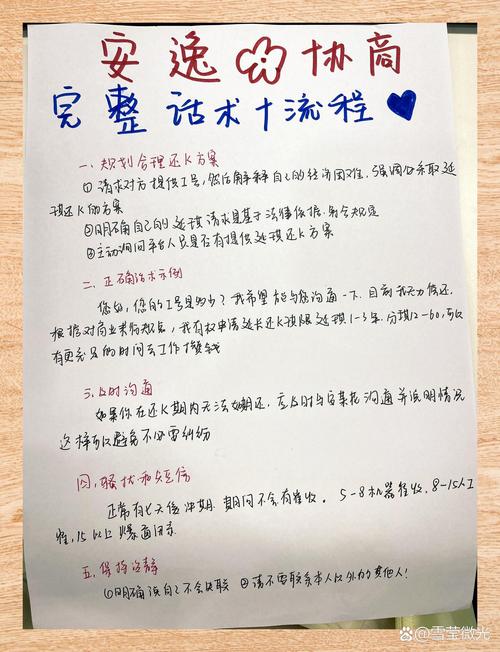 安逸 协商
完整话术+流程
一、规划合理还K方案
①请求对方提供工号,然后解释自己的经济困难,强调公采取延
琪还K的方案
②明确自己的延琪请求是基于法律依据和规定
③主动询问平台人员是否有提供延琪还K方案
二、正确话术示例
您好,您的工号是多少?我希望能与您沟通一下,目前我无力偿还,
根据对商业的规定,我有权申请延长还K琪限延琪1-3年,分琪12-60,可以
有更充足的时间去工作攒钱
三.及时沟通
如果你在还K期内无法如期还,应及时与安某花沟通并说明情况
这样可以避免不必要纠纷
四,骚扰和短信
正常有七天缓冲期,期间不会有催收。5-8机器催收,8-15人工
催,15以上爆通
五.保持冷静
①明确说自己不会失联 ②请不要联系本人以外的其他人!
@雪莹微光